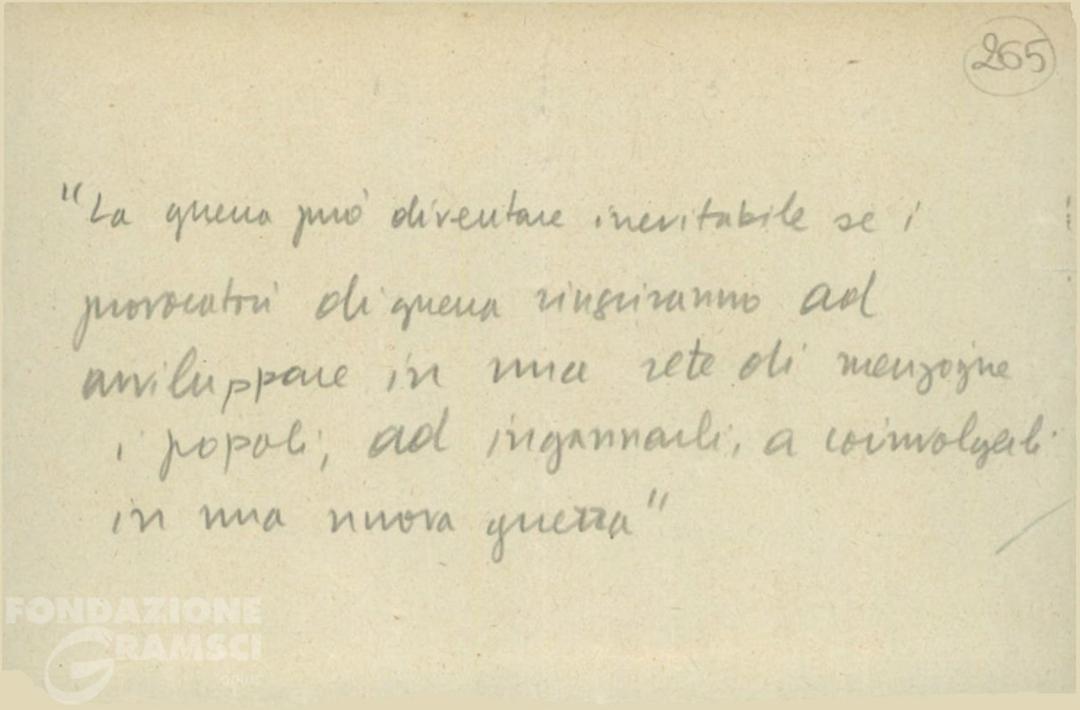 265
"La guerra può diventare inevitabile se i
provocatori di guerra riusciranno ad
avviluppare in una rete di menzogne
i popoli, ad ingannarli, a coinvolgerli
in una nuova guerra"
FONDAZIONE
GRAMSCI